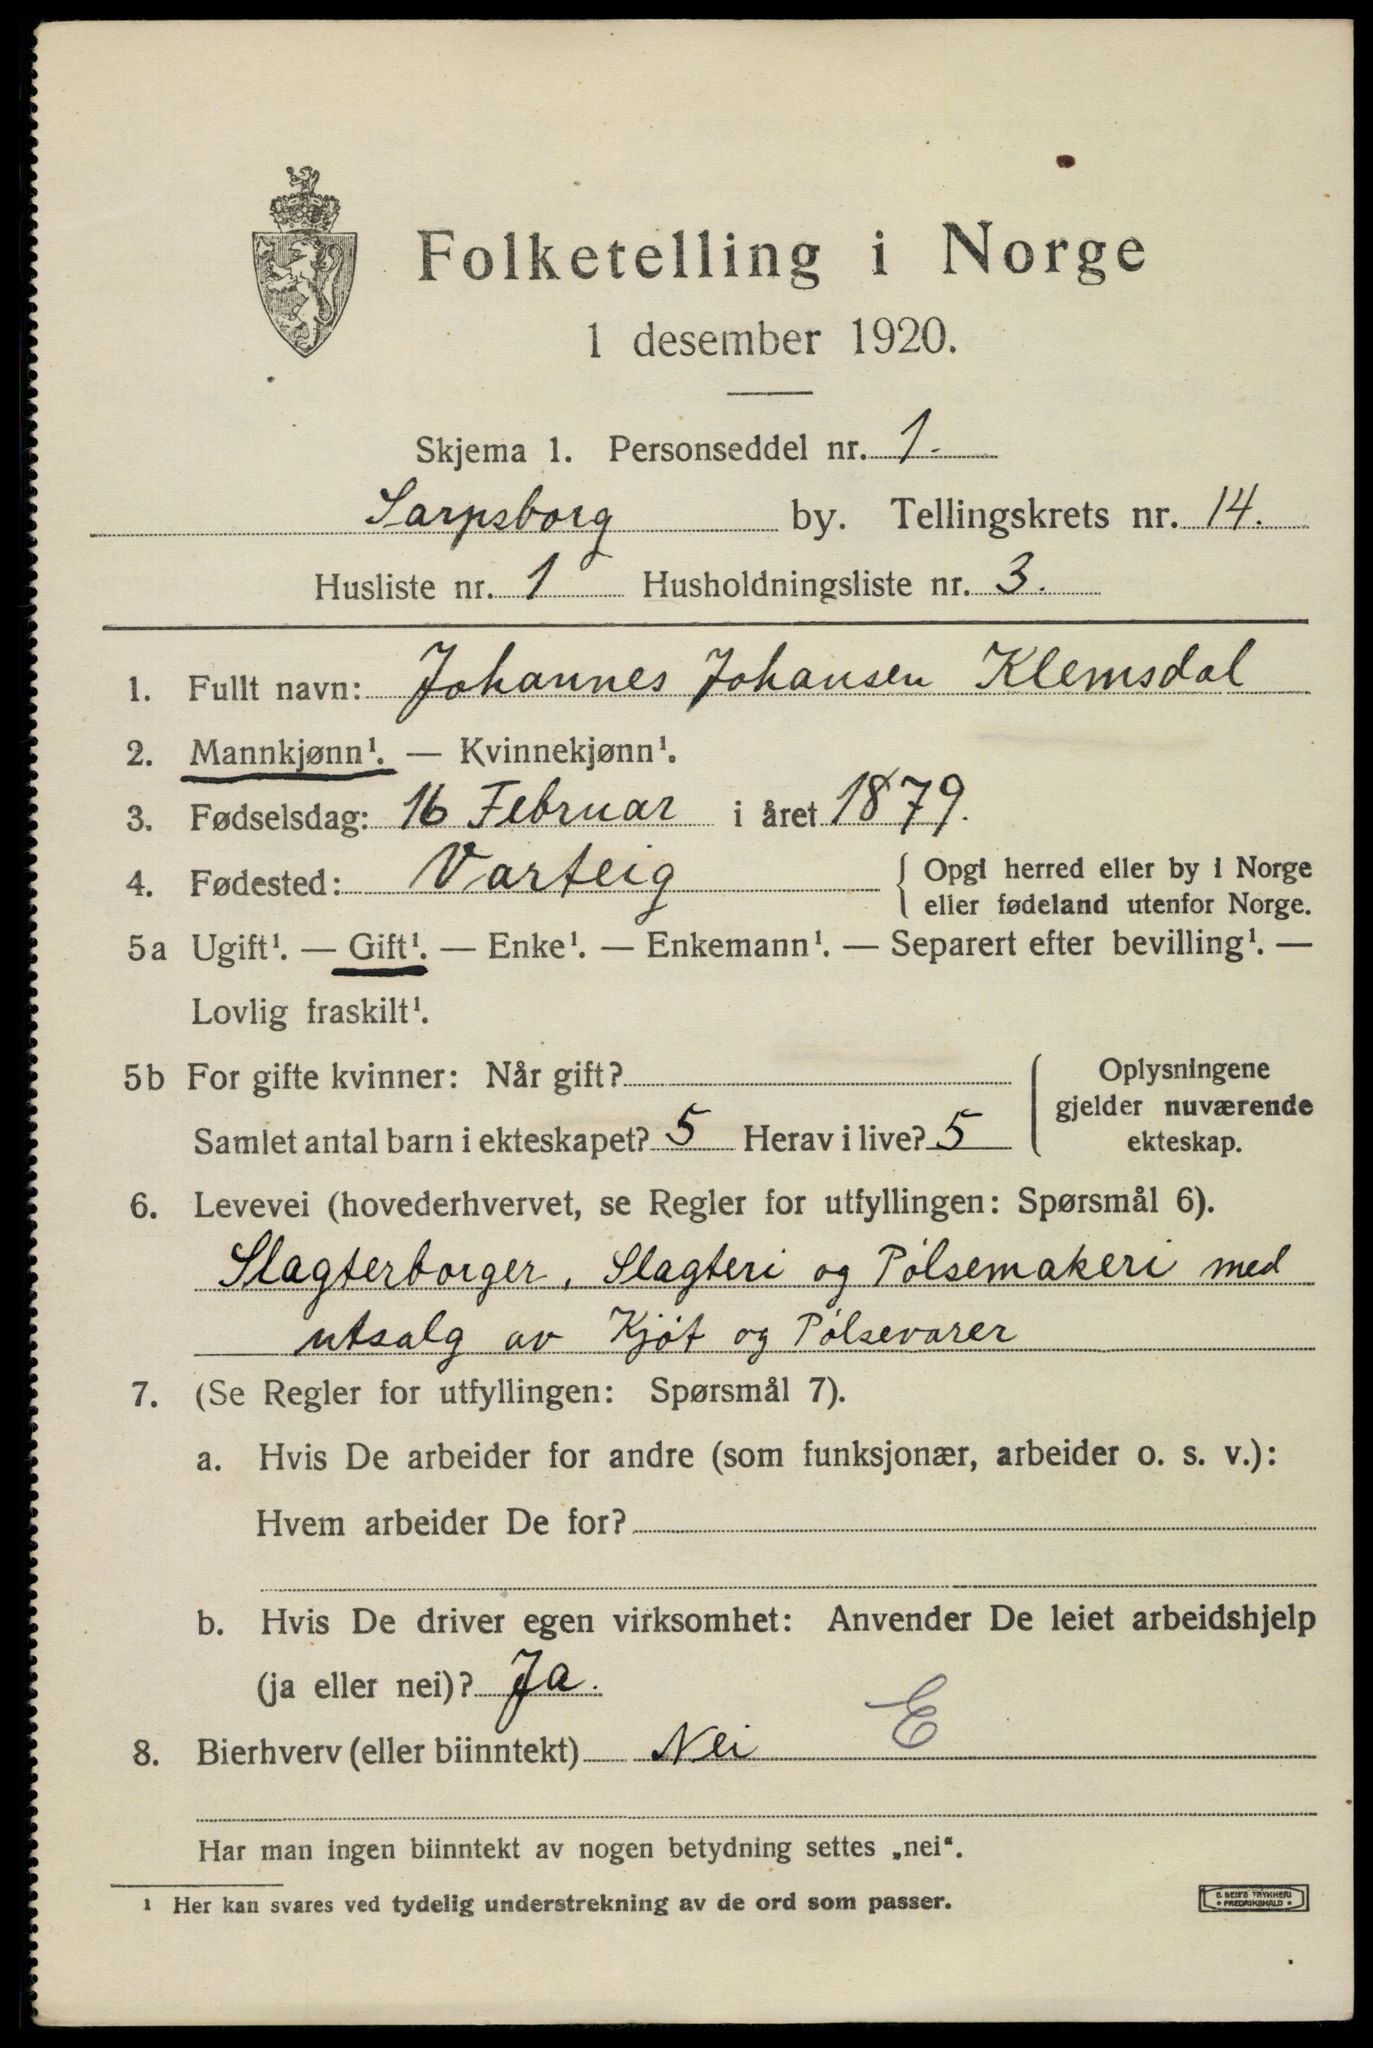 Folketelling i Norge
1 desember 1920.
Skjema 1. Personseddel nr. 1.
Sarpsborg by. Tellingskrets nr. 14.
Husliste nr. 1 Husholdningsliste nr. 3.
1. Fullt navn: Johannes Johansen Klemsdal
2. Mannkjønn¹. — Kvinnekjønn¹.
3. Fødselsdag: 16 Februar i året 1879.
4. Fødested: Varteig { Opgi herred eller by i Norge
eller fødeland utenfor Norge.
5a Ugift¹. — Gift¹. — Enke¹. — Enkemann¹. — Separert efter bevilling¹. —
Lovlig fraskilt¹.
5b For gifte kvinner: Når gift?
Samlet antal barn i ekteskapet? 5 Herav i live? 5
Oplysningene
gjelder nuværende
ekteskap.
6. Levevei (hovederhvervet, se Regler for utfyllingen: Spørsmål 6).
Slagterborger, Slagteri og Pølsemakeri med
utsalg av Kjøt og Pølsevarer
7. (Se Regler for utfyllingen: Spørsmål 7).
a. Hvis De arbeider for andre (som funksjonær, arbeider o. s. v.):
Hvem arbeider De for?
b. Hvis De driver egen virksomhet: Anvender De leiet arbeidshjelp
(ja eller nei)? Ja.
E
8. Bierhverv (eller biinntekt) Nei
Har man ingen biinntekt av nogen betydning settes „nei“.
¹ Her kan svares ved tydelig understrekning av de ord som passer.
E SEM'S TRYKKERI
• FREDRIKSHALD •